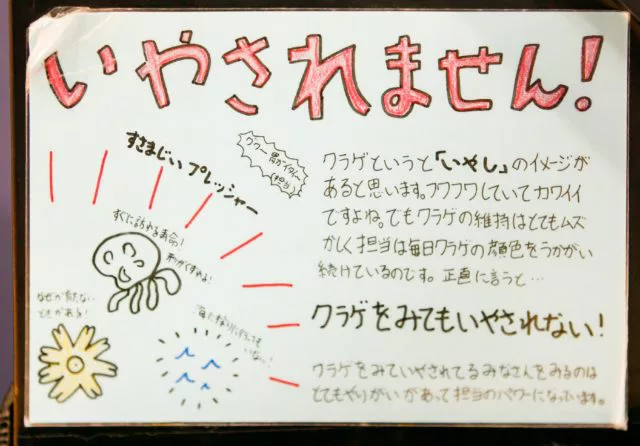 いやされません!
すさまじい プレッシャー
ウワー 胃がイタイ
(担当)
クラゲというと「いやし」のイメージが
あると思います。フワフワしていてカワイイ
ですよね。でもクラゲの維持はとてもムズ
かしく担当は毎日クラゲの顔色をうかがい
続けているのです。正直に言うと…
すぐに訪れる寿命!
なぜか育たない
ときがある!
クラゲをみてもいやされない!
クラゲをみていやされてるみなさんをみるのは
とてもやりがいがあって担当のパワーになっています。